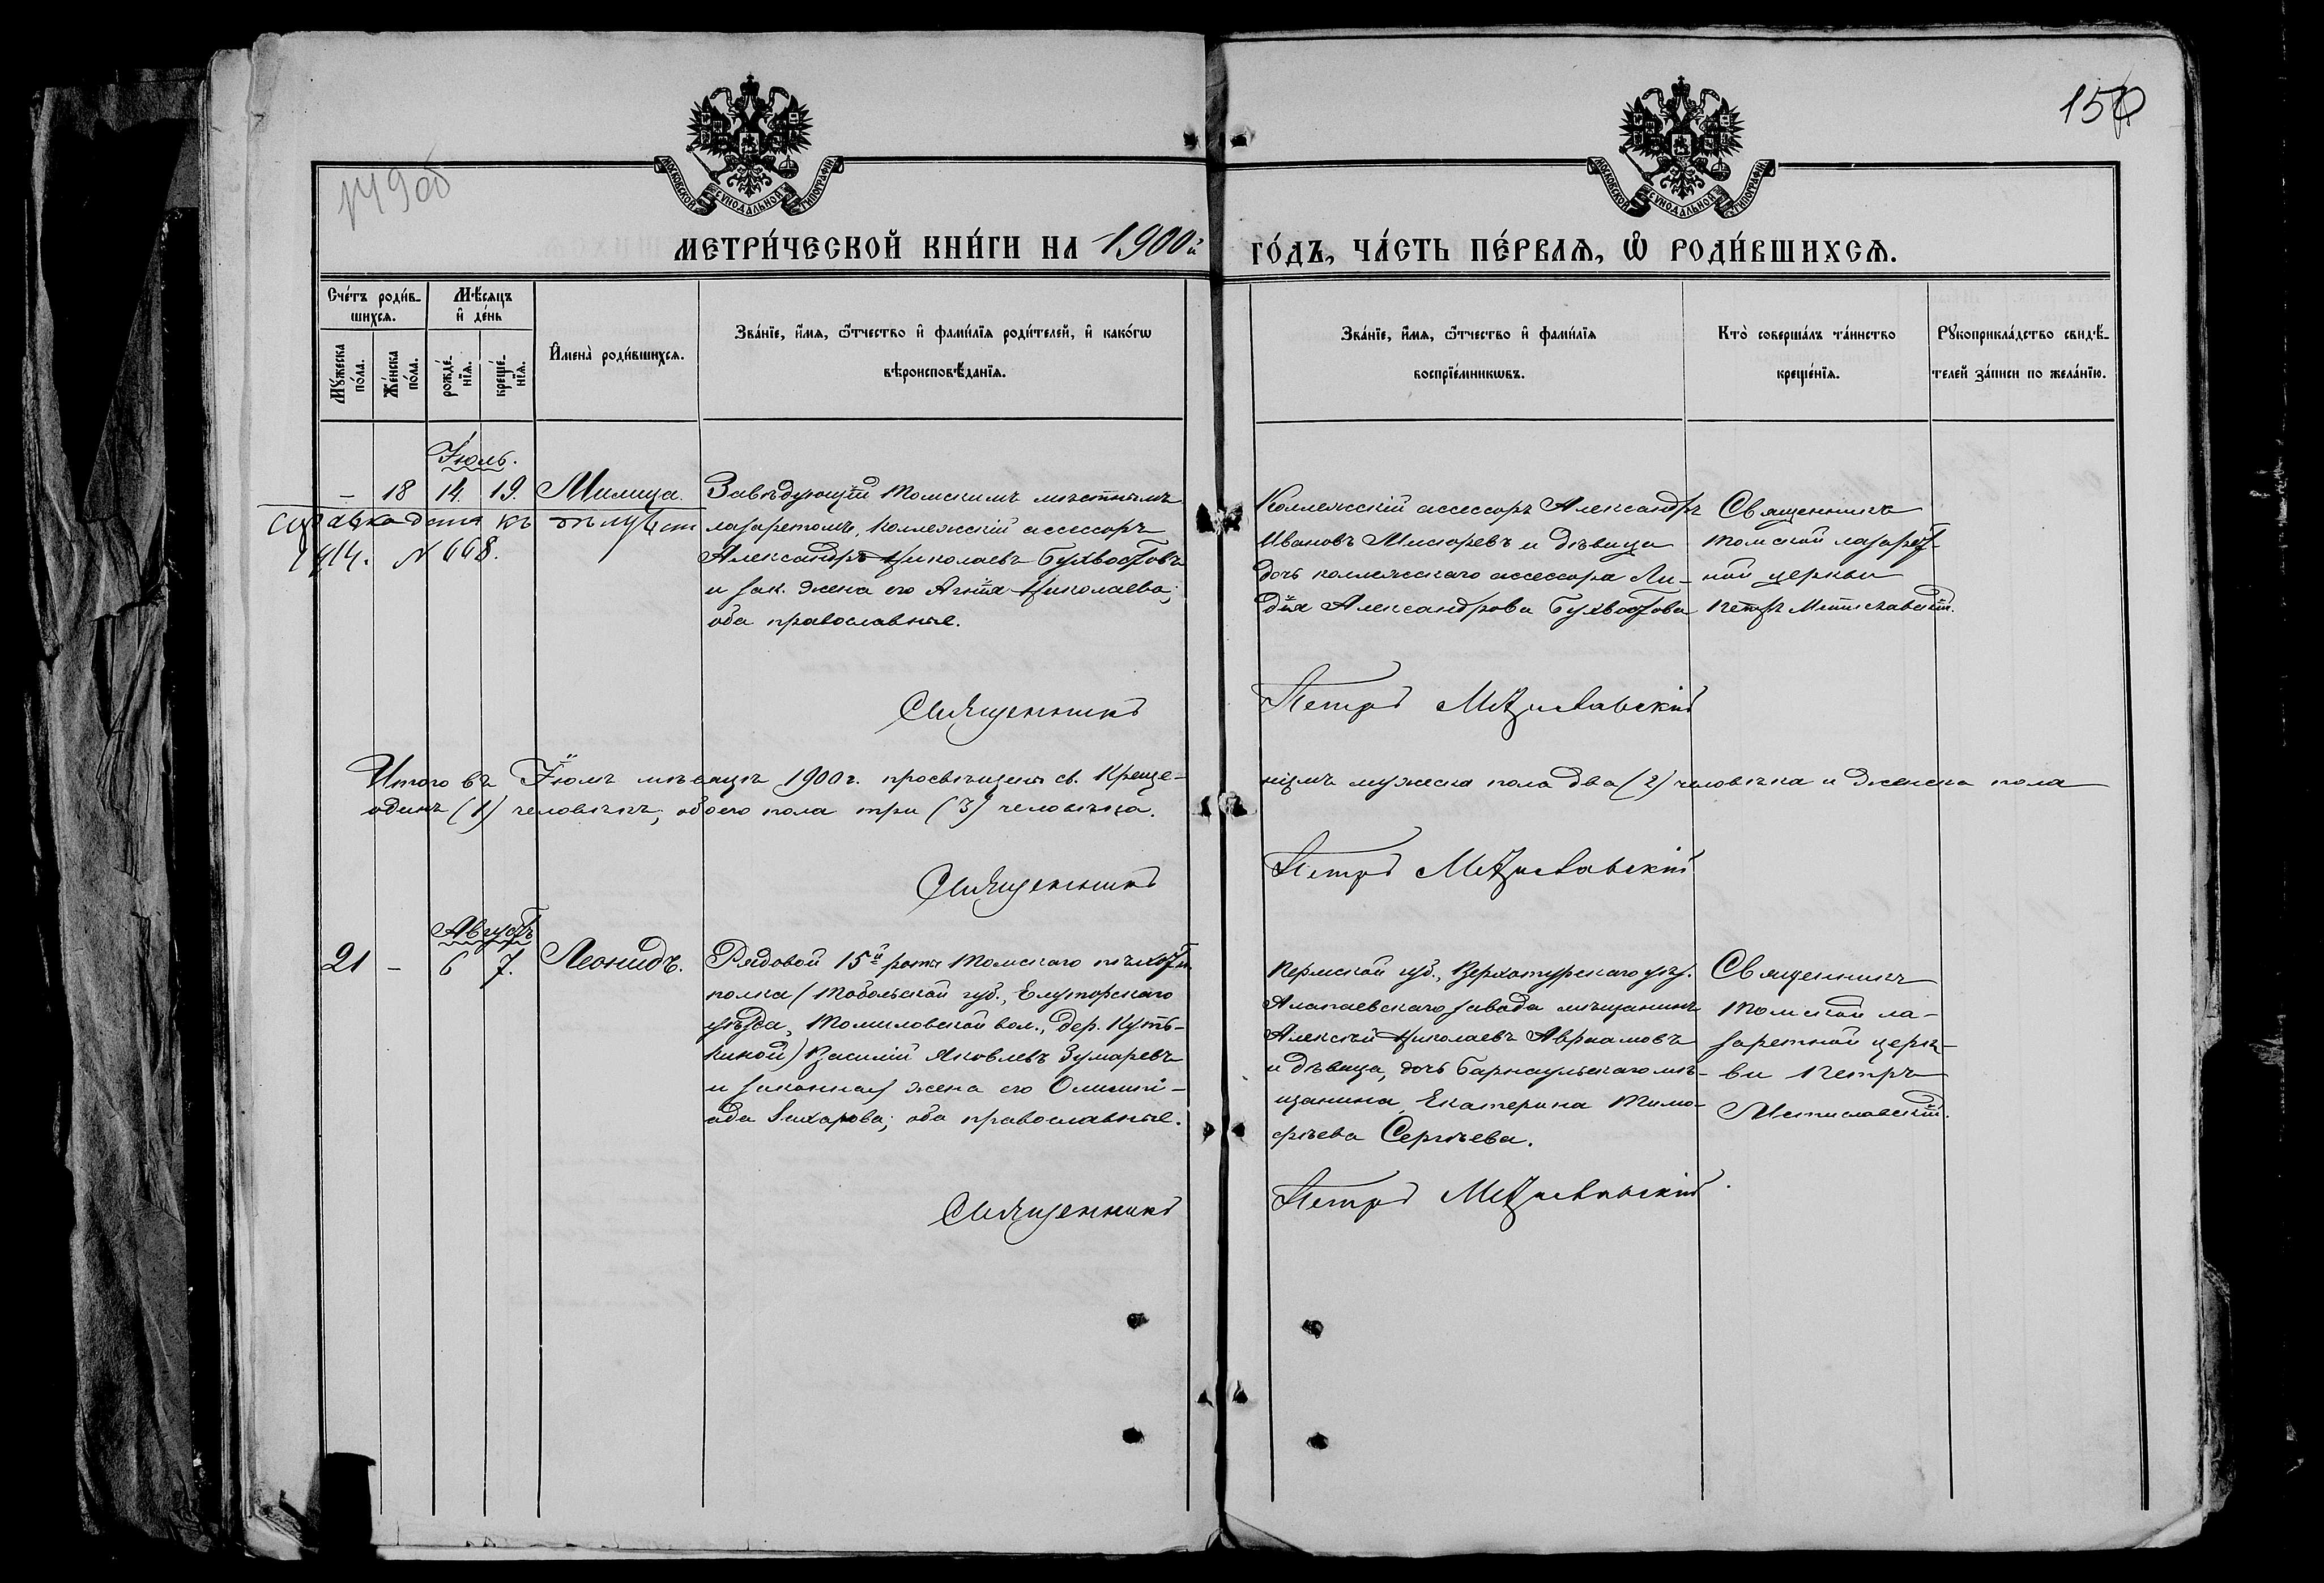 149об
150
МОСКОВСКОЙ СѴНОДАЛЬНОЙ ТИПОГРАФІИ
МОСКОВСКОЙ СѴНОДАЛЬНОЙ ТИПОГРАФІИ
МЕТРИ́ЧЕСКОЙ КНИ́ГИ НА 1900й ГО́ДЪ, ЧА́СТЬ ПЕ́РВАѦ, Ѡ҆ РОДИ́ВШИХСѦ.
Сче́тъ роди́в-
шихсѧ.
Мꙋжеска по́ла.
Же́нска по́ла.
Мѣ́сѧцъ
и҆ де́нь
рожде́-
нїѧ.
креще́-
нїѧ.
И҆мена̀ роди́вшихсѧ.
Зва́нїе, и҆́мѧ, ѻ҆́тчество и҆ фами́лїѧ роди́телей, и҆ како́гѡ
вѣроисповѣ́данїѧ.
Зва́нїе, и҆́мѧ, ѻ҆́тчество и҆ фами́лїѧ
воспрїе́мникѡвъ.
Кто̀ соверша́лъ та́инство
креще́нїѧ.
Рꙋкоприкла́дство свидѣ́-
телей за́писи по жела́нїю.
Іюль.
– 18 14. 19. Милица.
Завѣдующій Томскимъ мѣстнымъ
лазаретомъ, коллежскій ассессоръ
Александръ Николаевъ Бухвостовъ
и зак. жена его Агнія Николаева;
оба православные.
Коллежскій ассессоръ Александръ
Ивановъ Мисюревъ и дѣвица
дочь коллежскаго ассессора Ли-
дія Александрова Бухвостова
Священникъ
Томской лазарет-
ной церкви
Петръ Мстиславскій.
Справка дана
1914. № 668.
Священникъ Петръ Мстиславскій
Итого въ Іюлѣ мѣсяцѣ 1900 г. просвѣщены св. Креще-ніемъ мужеска пола два (2) человѣка и женска пола
одинъ (1) человѣкъ; обоего пола три (3) человѣка.
Священникъ Петръ Мстиславскій
Августъ
21 – 6 7. Леонидъ.
Рядовой 15й роты Томскаго пѣхотн.
полка (Тобольской губ., Ялуторскаго
уѣзда, Томиловской вол., дер. Куть-
киной) Василій Яковлевъ Зумаревъ
и законная жена его Олимпі-
ада Захарова; оба православные.
Пермской губ., Верхотурскаго уѣз.
Алапаевскаго завода мѣщанинъ
Алексѣй Николаевъ Авраамовъ
и дѣвица, дочь Барнаульскаго мѣ-
щанина Екатерина Тимо-
фѣева Сергѣева.
Священникъ
Томской ла-
заретной церк-
ви Петръ
Мстиславскій.
Священникъ Петръ Мстиславскій.